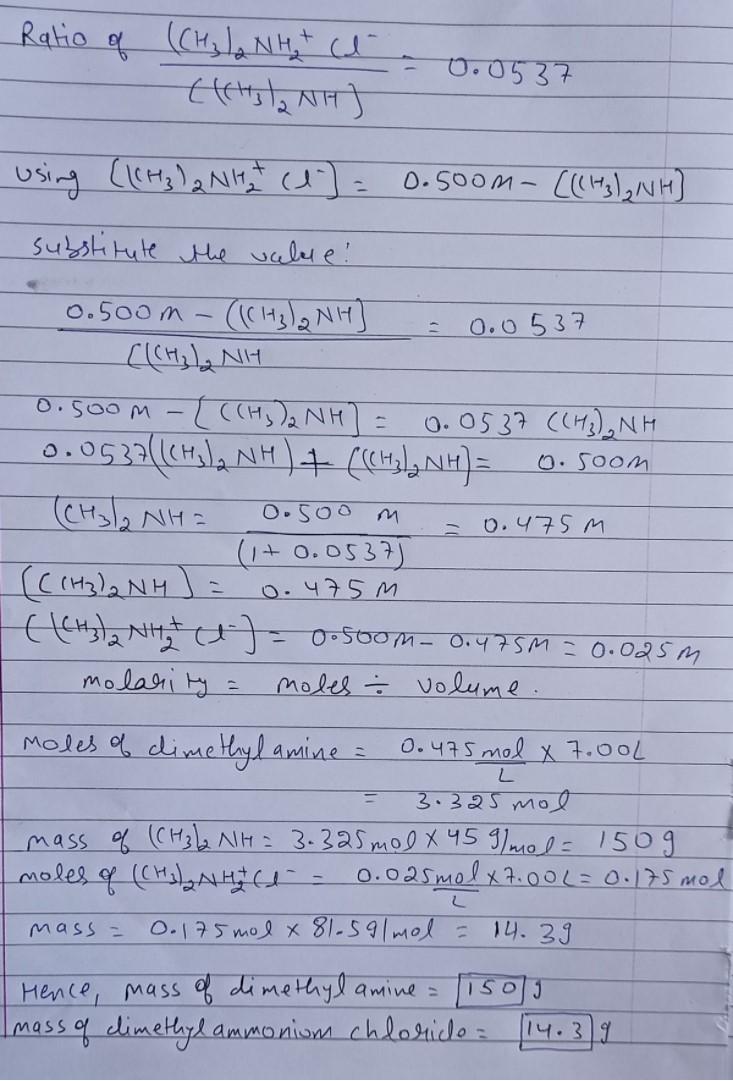 Ratio of (CH3)2 NH2+ Cl- / ((CH3)2 NH] = 0.0537
using [(CH3)2NH2+ Cl-] = 0.500M - [(CH3)2NH]
substitute the value:
0.500 M - ((CH3)2 NH] / [(CH3)2 NH = 0.0537
0.500 M - [(CH3)2 NH] = 0.0537 (CH3)2NH
0.0537((CH3)2 NH) + [(CH3)2NH] = 0.500M
(CH3)2 NH = 0.500 M / (1 + 0.0537) = 0.475 M
[(CH3)2NH] = 0.475 M
[(CH3)2 NH2+ Cl-] = 0.500M - 0.475M = 0.025 M
molarity = moles ÷ volume.
Moles of dimethylamine = 0.475 mol/L x 7.00L
= 3.325 mol
mass of (CH3)2 NH = 3.325 mol x 45 g/mol = 150 g
moles of (CH3)2NH2+Cl- = 0.025 mol/L x 7.00L = 0.175 mol
mass = 0.175 mol x 81.5g/mol = 14.3g
Hence, mass of dimethylamine = 150 g
mass of dimethylammonium chloride = 14.3 g